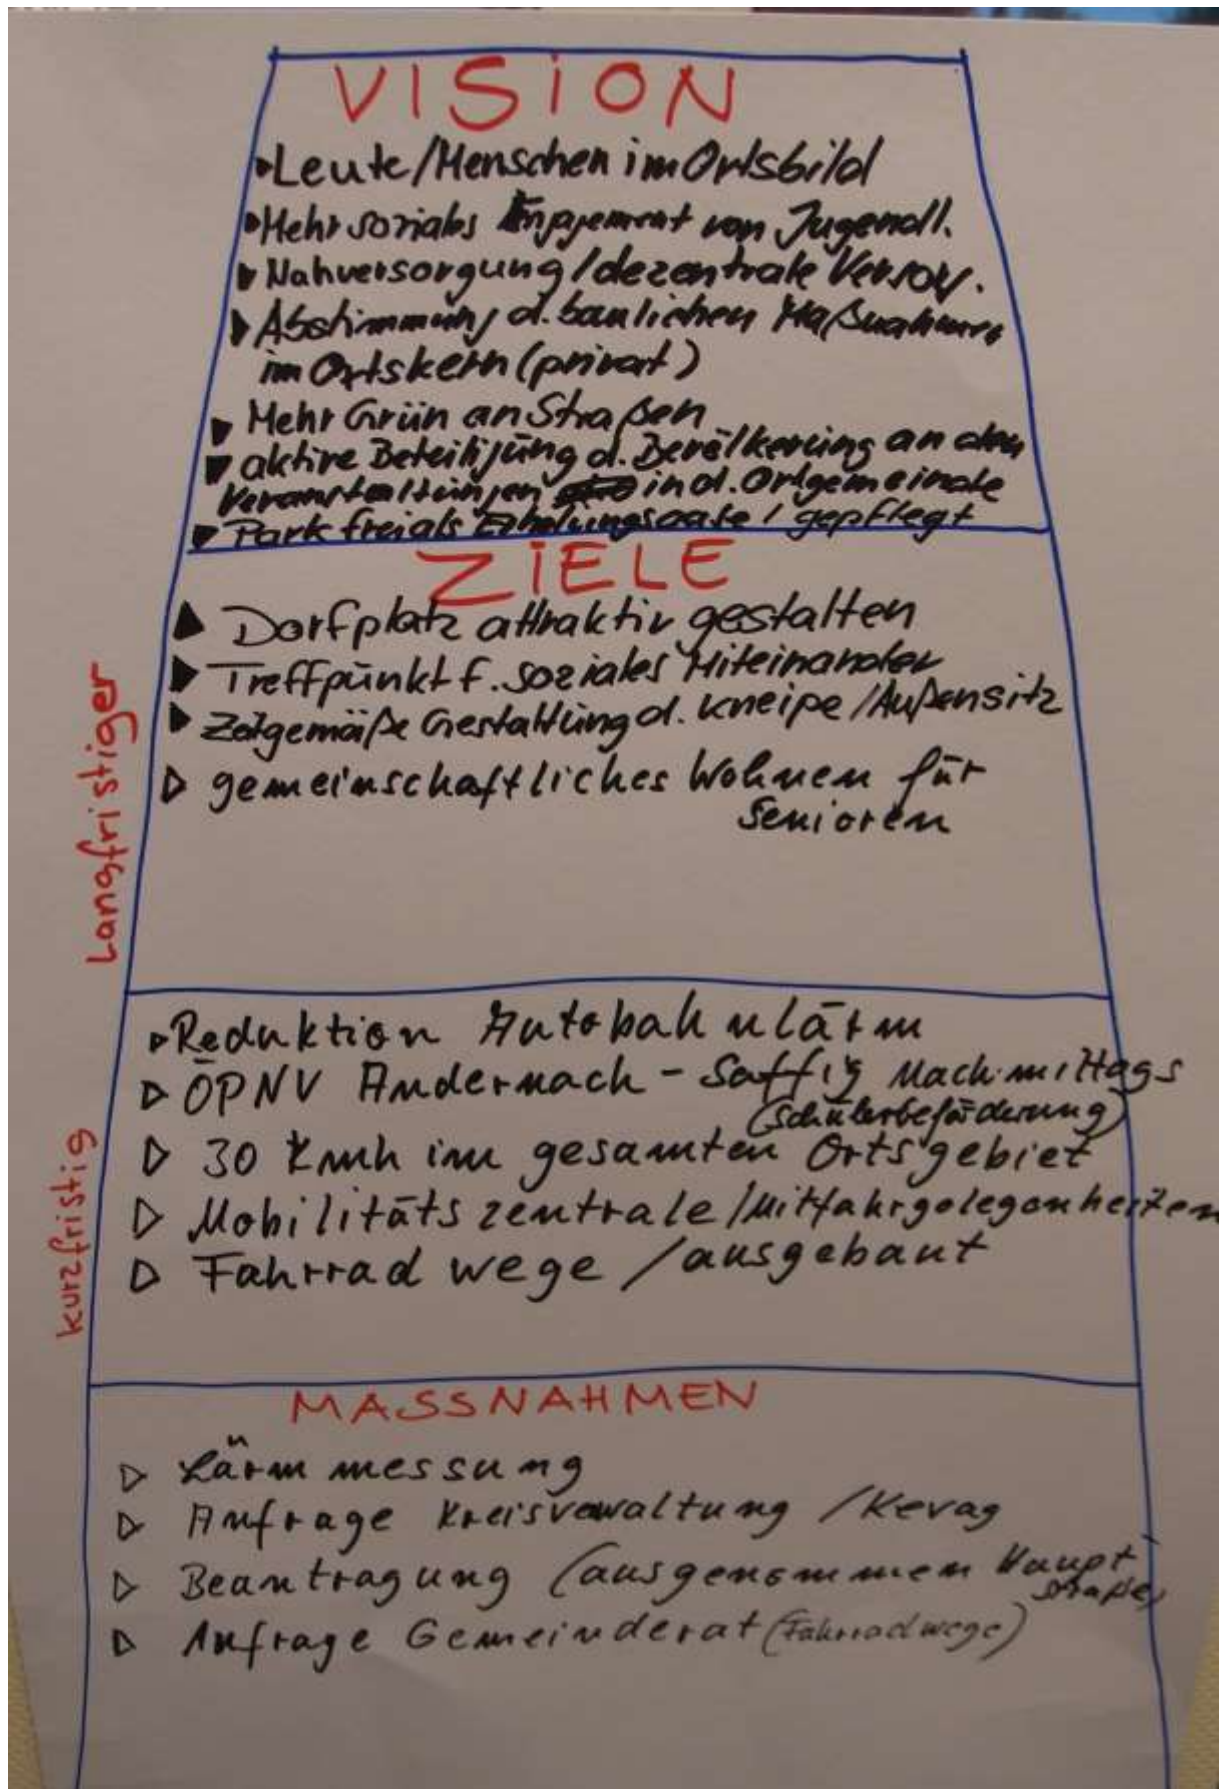 VISION
Leute/Menschen im Ortsbild
Mehr soziales Engagement von Jugendl.
Nahversorgung/dezentrale Versor.
Abstimmung d. baulichen Maßnahmen
im Ortskern (privat)
Mehr Grün an Straßen
aktive Beteiligung d. Bevölkerung an den
Veranstaltungen in d. Ortgemeinde
Park frei als / gepflegt
ZIELE
Dorfplatz attraktiv gestalten
Treffpunkt f. soziales Miteinander
Zeitgemäße Gestaltung d. Kneipe/Außensitz
gemeinschaftliches Wohnen für
Senioren
Langfristiger
Reduktion Autobahnlärm
ÖPNV Andernach - Saffig Nachmittags
(Schülerbeförderung)
30 Kmh im gesamten Ortsgebiet
Mobilitätszentrale/Mitfahrgelegenheiten
Fahrrad wege / ausgebaut
kurzfristig
MASSNAHMEN
Lärm messung
Anfrage Kreisvewaltung / Kevag
Beantragung (ausgenommen Haupt
straße)
Anfrage Gemeinderat (Fahrradwege)